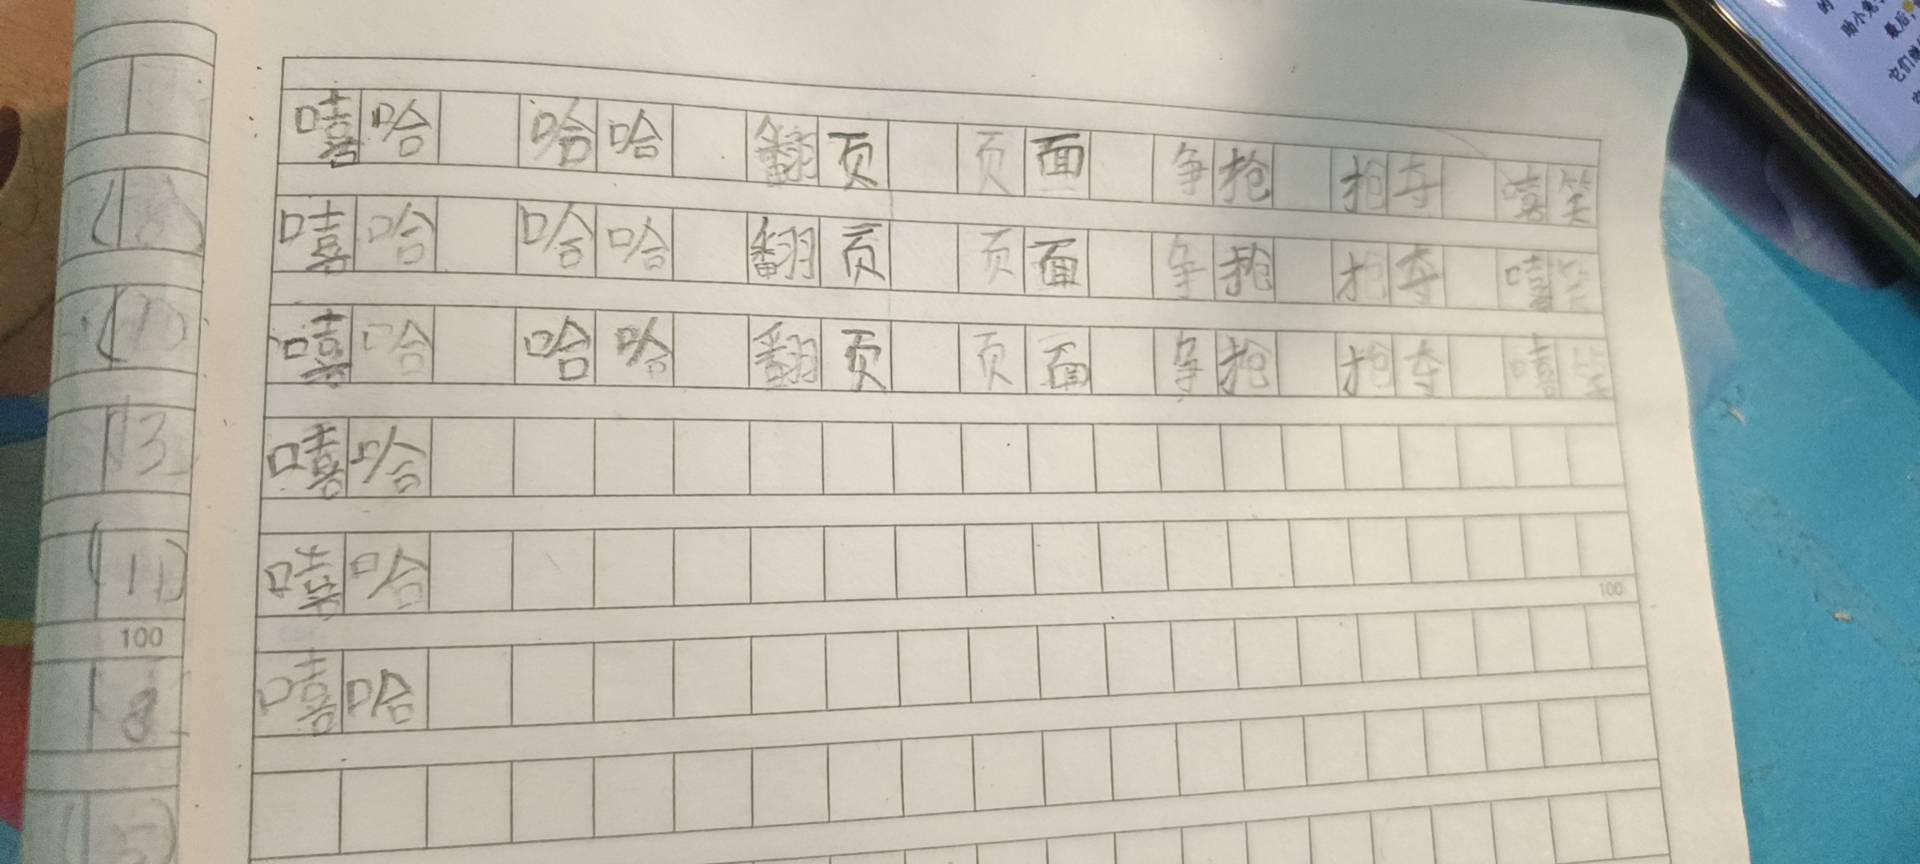 嘻哈 哈哈 翻页 页面 争抢 抢夺 嘻笑
嘻哈 哈哈 翻页 页面 争抢 抢夺 嘻笑
嘻哈 哈哈 翻页 页面 争抢 抢夺 嘻笑
嘻哈
嘻哈
100
嘻哈
13
100
8
助小兔
最后,
它们